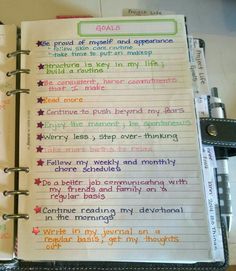 Project Life
GOALS
Be proud of myself and appearance
- follow skin care routine
- take time to put on makeup
Structure is key in my life;
build a routine
Be consistent, honor commitments
that I make
Read more
Continue to push beyond my fears
Enjoy the moment, be spontaneous
Worry less, stop over-thinking
Take more baths to relax
Follow my weekly and monthly
chore schedules
Do a better job communicating with
my friends and family on a
regular basis
Continue reading my devotional
in the mornings
Write in my journal on a
regular basis, get my thoughts
out